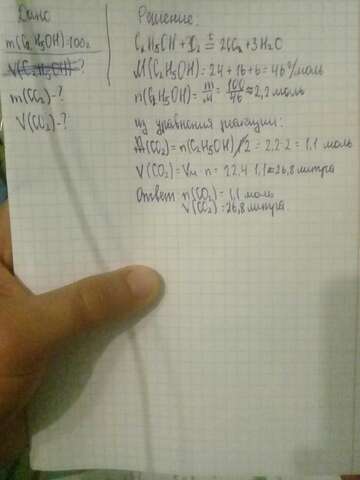 Дано
m(C₂H₅OH)=100г
V(C₂H₅OH)-?
m(CO₂)-?
V(CO₂)-?
Решение:
C₂H₅OH + O₂ = 2CO₂ + 3H₂O
M(C₂H₅OH) = 24 + 16 + 6 = 46 г/моль
n(C₂H₅OH) = m/M = 100/46 ≈ 2,2 моль
из уравнения реакции:
n(CO₂) = n(C₂H₅OH) / 2 = 2,2 : 2 = 1,1 моль
V(CO₂) = Vм · n = 22,4 · 1,1 = 26,8 литра
Ответ: n(CO₂) = 1,1 моль
V(CO₂) = 26,8 литра.